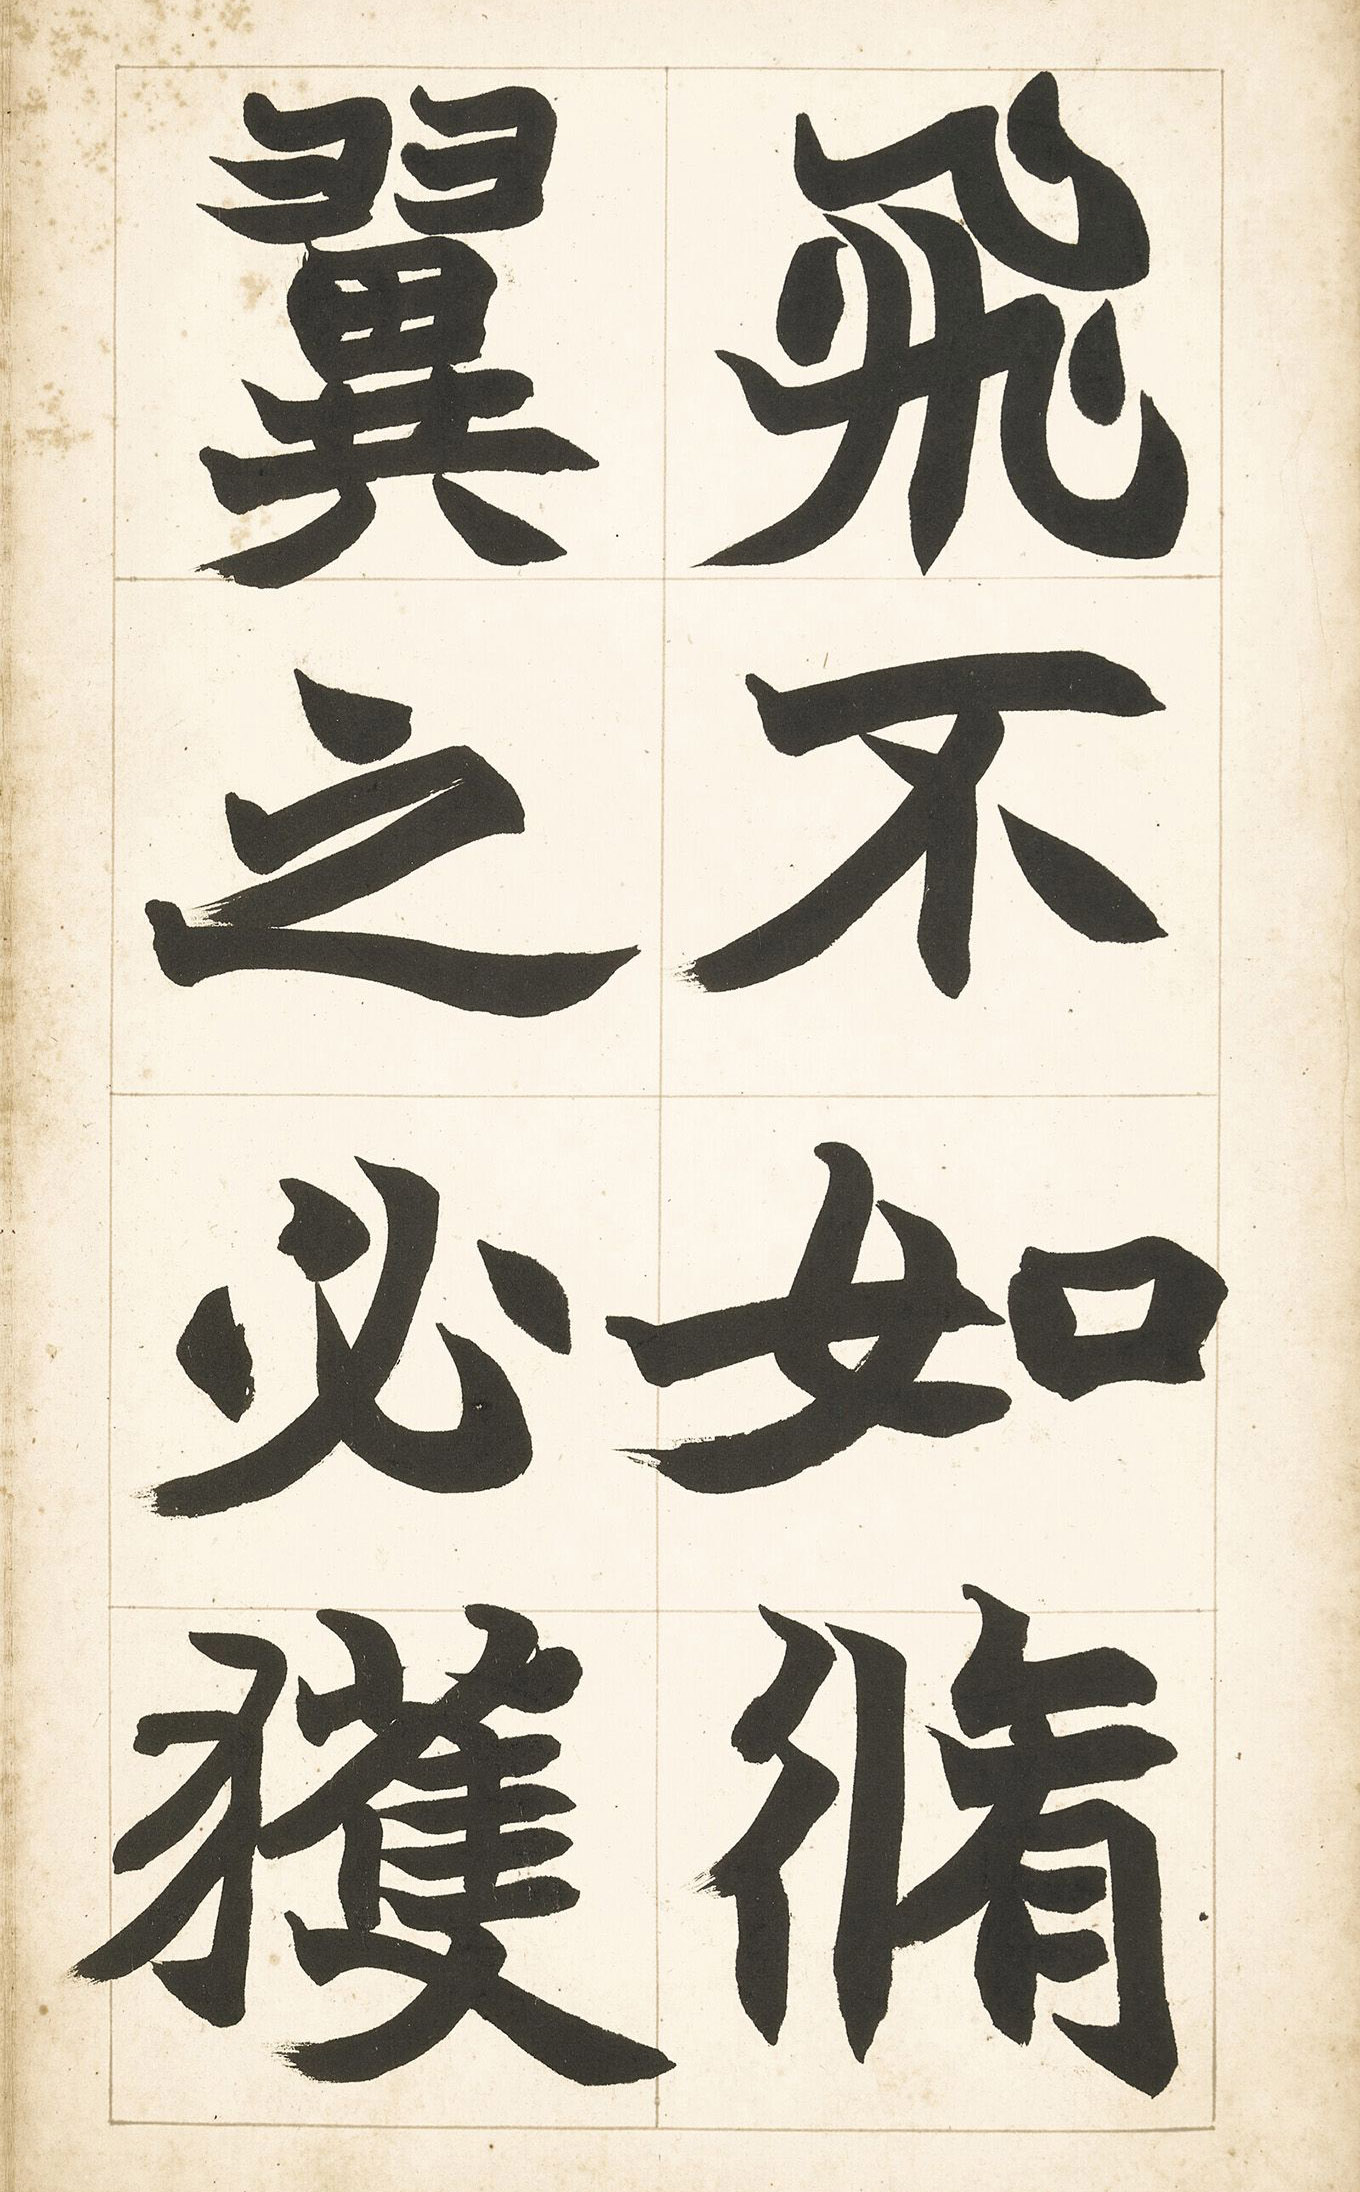 飛不如脩
翼之必獲